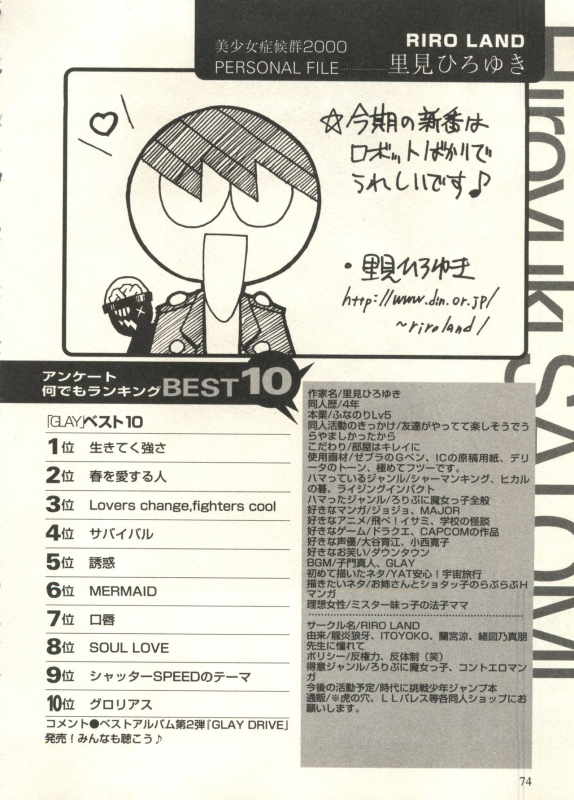 美少女症候群2000
PERSONAL FILE
RIRO LAND
里見ひろゆき
Hiroyuki SATOMI
☆今期の新番は
ロボットばかりで
うれしいです♪
・里見ひろゆき
http://www.din.or.jp/
~riroland/
アンケート
何でもランキングBEST10
「GLAY」ベスト10
1位 生きてく強さ
2位 春を愛する人
3位 Lovers change,fighters cool
4位 サバイバル
5位 誘惑
6位 MERMAID
7位 口唇
8位 SOUL LOVE
9位 シャッターSPEEDのテーマ
10位 グロリアス
コメント●ベストアルバム第2弾「GLAY DRIVE」
発売！みんなも聴こう♪
作家名/里見ひろゆき
同人歴/4年
本業/ふなのりLv5
同人活動のきっかけ/友達がやってて楽しそうでう
らやましかったから
こだわり/部屋はキレイに
使用画材/ゼブラのGペン、ICの原稿用紙、デリ
ータのトーン、極めてフツーです。
ハマっているジャンル/シャーマンキング、ヒカル
の碁、ライジングインパクト
ハマったジャンル/ろりぷに魔女っ子全般
好きなマンガ/ジョジョ、MAJOR
好きなアニメ/飛べ！イサミ、学校の怪談
好きなゲーム/ドラクエ、CAPCOMの作品
好きな声優/大谷育江、小西寛子
好きなお笑い/ダウンタウン
BGM/子門真人、GLAY
初めて描いたネタ/YAT安心！宇宙旅行
描きたいネタ/お姉さんとショタッ子のらぶらぶH
マンガ
理想女性/ミスター味っ子の法子ママ
サークル名/RIRO LAND
由来/龍炎狼牙、ITOYOKO、蘭宮涼、緒図乃真朋
先生に憧れて
ポリシー/反権力、反体制（笑）
得意ジャンル/ろりぷに魔女っ子、コントエロマン
ガ
今後の活動予定/時代に挑戦少年ジャンプ本
通販/※虎の穴、ＬＬパレス等各同人ショップにお
願いします。
74